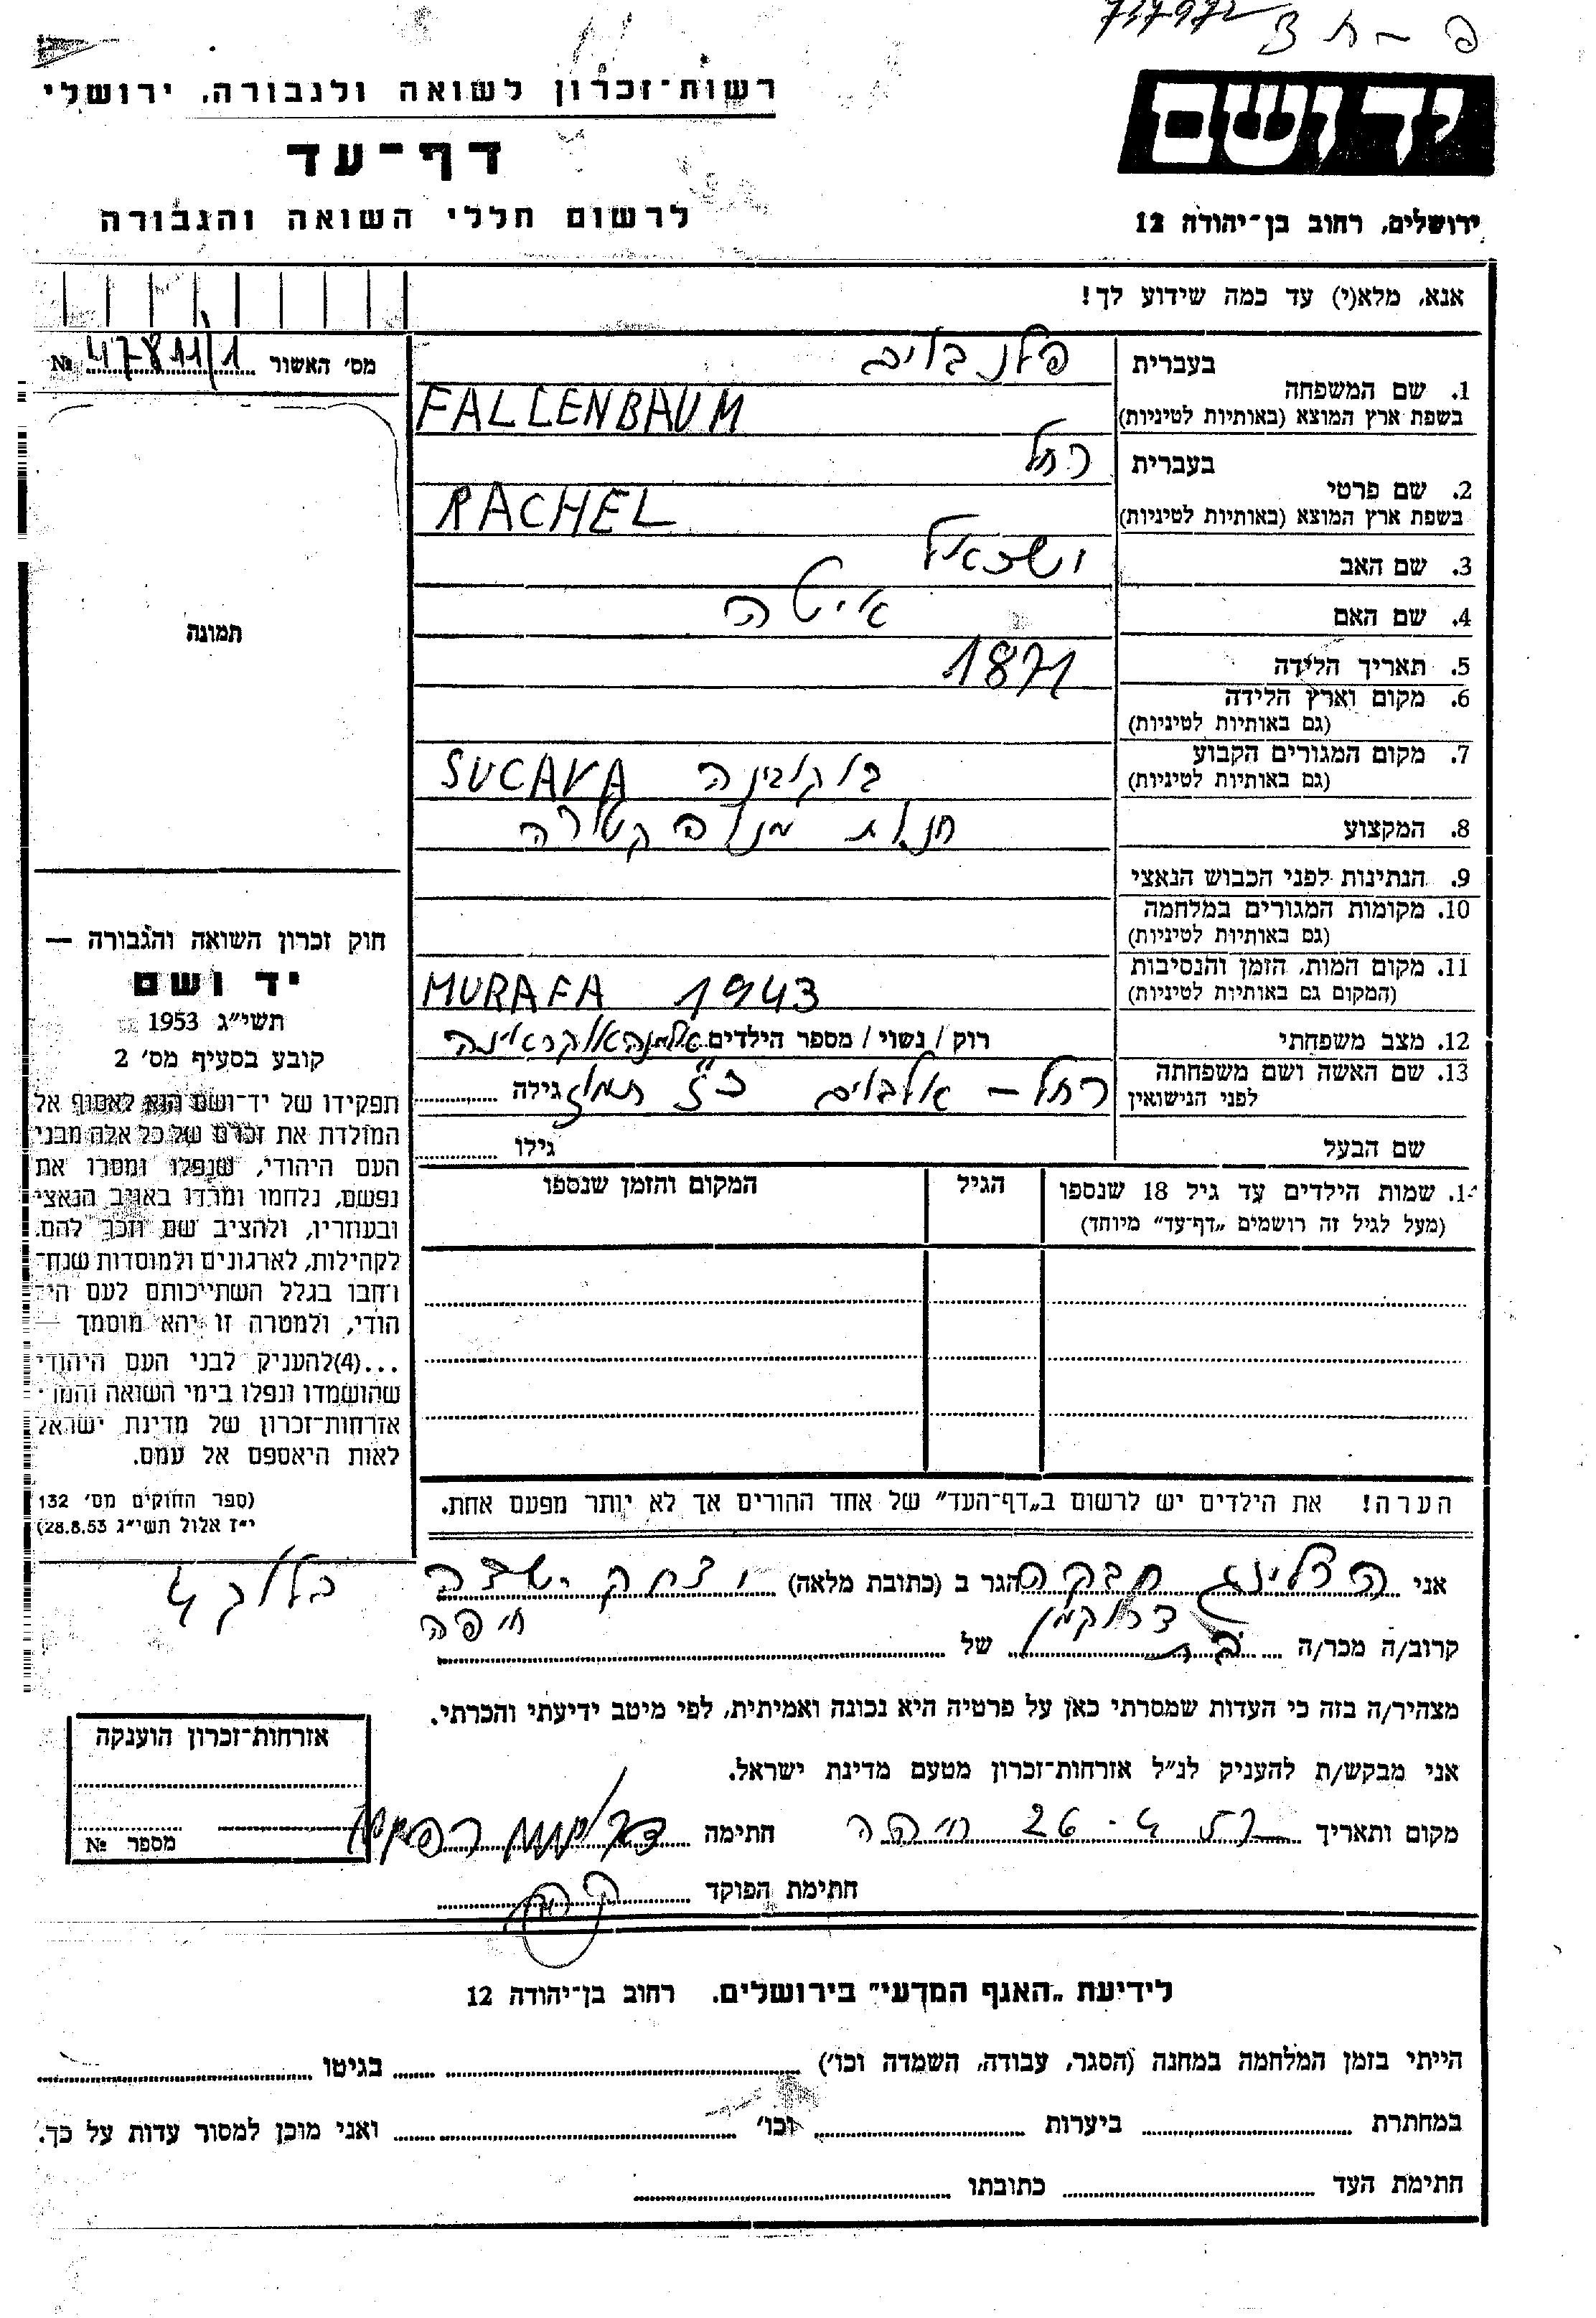 737972
רשות־זכרון לשואה ולגבורה, ירושלי
דף־עד
לרשום חללי השואה והגבורה
ידושם
ירושלים, רחוב בן־יהודה 12
אנא, מלא(י) עד כמה שידוע לך!
מס' האשור 47811/1 №
תמונה
חוק זכרון השואה והגבורה —
יד ושם
תשי"ג 1953
קובע בסעיף מס' 2
תפקידו של יד־ושם הוא לאסוף אל
המולדת את זכרם של כל אלה מבני
העם היהודי, שנפלו ומסרו את
נפשם, נלחמו ומרדו באויב הנאצי
ובעוזריו, ולהציב שם וזכר להם,
לקהילות, לארגונים ולמוסדות שנח־
רבו בגלל השתייכותם לעם הי־
הודי, ולמטרה זו יהא מוסמך —
...(4)להעניק לבני העם היהודי
שהושמדו ונפלו בימי השואה והמר
אזרחות־זכרון של מדינת ישראל
לאות היאספם אל עמם.
(ספר החוקים מס' 132
י"ז אלול תשי"ג 28.8.53)
בעברית
1. שם המשפחה
בשפת ארץ המוצא (באותיות לטיניות) FALLENBAUM
בעברית רחל
2. שם פרטי
בשפת ארץ המוצא (באותיות לטיניות) RACHEL
3. שם האב
4. שם האם איטה
5. תאריך הלידה 1871
6. מקום וארץ הלידה
(גם באותיות לטיניות)
7. מקום המגורים הקבוע
(גם באותיות לטיניות) בוקובינה SUCAVA
8. המקצוע חנות מנופקטורה
9. הנתינות לפני הכבוש הנאצי
10. מקומות המגורים במלחמה
(גם באותיות לטיניות)
11. מקום המות, הזמן והנסיבות
(המקום גם באותיות לטיניות) MURAFA 1943
12. מצב משפחתי רוק / נשוי / מספר הילדים
13. שם האשה ושם משפחתה
לפני הנישואין רחל – גילה
שם הבעל גילו
14. שמות הילדים עד גיל 18 שנספו הגיל המקום והזמן שנספו
(מעל לגיל זה רושמים „דף־עד" מיוחד)
הערה! את הילדים יש לרשום ב„דף־העד" של אחד ההורים אך לא יותר מפעם אחת.
אני הגר ב (כתובת מלאה) יצחק שדה
חיפה
קרוב/ה מכר/ה בת של
מצהיר/ה בזה כי העדות שמסרתי כאן על פרטיה היא נכונה ואמיתית, לפי מיטב ידיעתי והכרתי.
אני מבקש/ת להעניק לנ"ל אזרחות־זכרון מטעם מדינת ישראל.
מקום ותאריך חיפה 26 חתימה
חתימת הפוקד
אזרחות־זכרון הוענקה
מספר №
לידיעת „האגף המדעי" בירושלים, רחוב בן־יהודה 12
הייתי בזמן המלחמה במחנה (הסגר, עבודה, השמדה וכו') בגיטו
במחתרת ביערות וכו' ואני מוכן למסור עדות על כך.
חתימת העד כתובתו